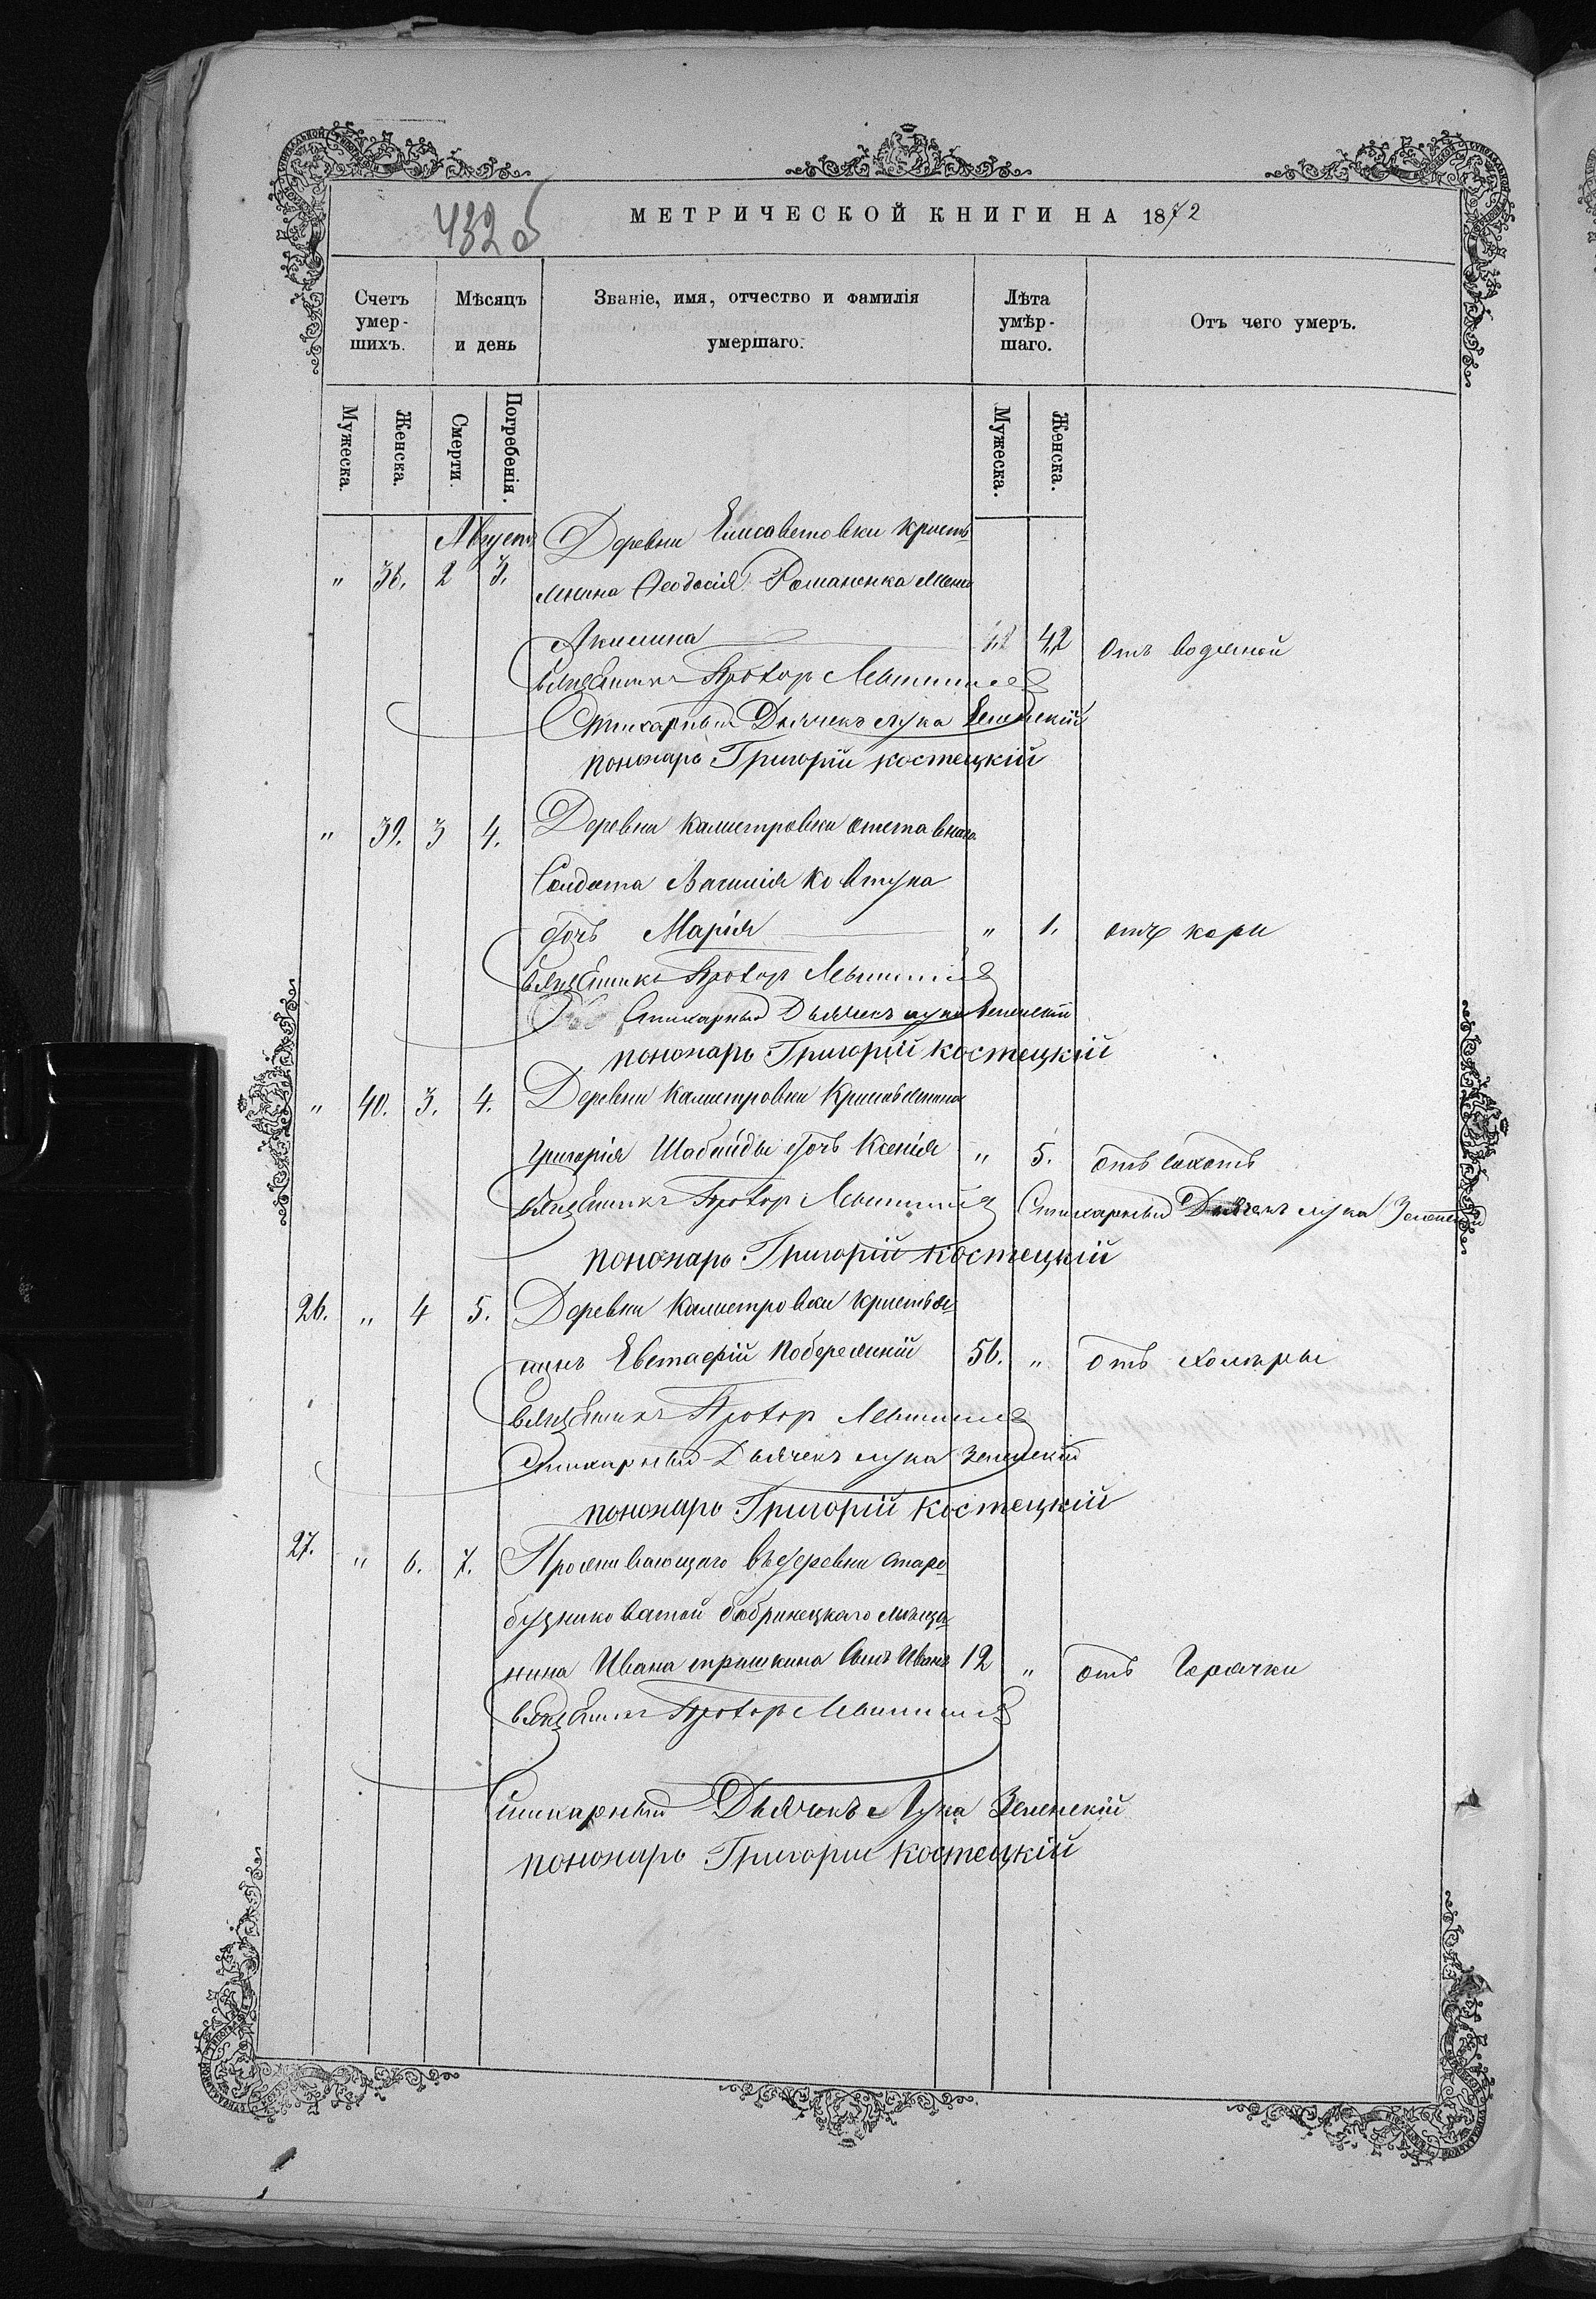 432 об
МЕТРИЧЕСКОЙ КНИГИ НА 1872
Счетъ умер-шихъ.
Мѣсяцъ и день
Званіе, имя, отчество и фамилія умершаго.
Лѣта умѣр-шаго.
Отъ чего умеръ.
Мужеска.
Женска.
Смерти.
Погребенія.
Мужеска.
Женска.
Августъ
Деревни Елисаветовки кресть
" 38. 2 3. янина Феодосія Романюка жена
Акилина 42 отъ водяной
Священникъ Левицкій
Стихарный Дьячекъ Лука Зеленскій
пономарь Григорій Костецкій
" 39. 3 4. Деревни Калистровки отставнаго
Солдата Василія Ковтуна
дочь Марія " 1. отъ кори
Священникъ Левицкій
Стихарный Дьячекъ Лука Зеленскій
пономарь Григорій Костецкій
" 40. 3. 4. Деревни Калистровки Крестьянина
Григорія Шабайды дочь Ксенія " 5. отъ
Священникъ Левицкій Стихарный Дьячекъ Лука Зеленскій
пономарь Григорій Костецкій
26. " 4 5. Деревни Калистровки крестья
нинъ Евстафій Побережный 56. " отъ холеры
Священникъ Левицкій
Стихарный Дьячекъ Лука Зеленскій
пономарь Григорій Костецкій
27. " 6. 7. Проживающаго въ деревни Старо
бузниковатой бобринецкаго мѣща
нина Ивана Тришкина сынъ Иванъ 12 " отъ Горячки
Священникъ Левицкій
Стихарный Дьячекъ Лука Зеленскій
пономарь Григорій Костецкій